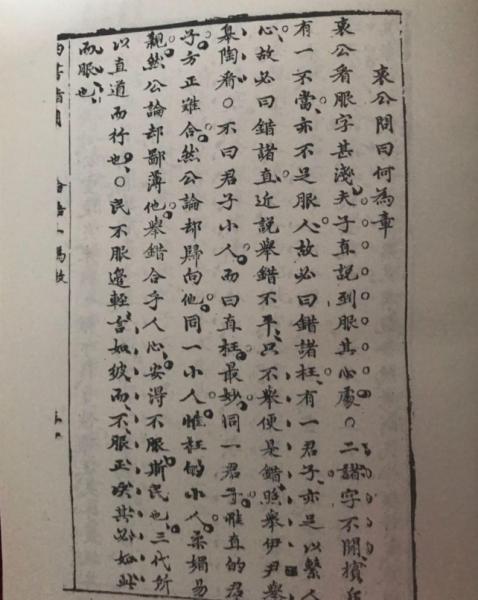 哀公問曰何為章
哀公看服字甚淺夫子直說到服其心處○二諸字不開擯兵
有一不當亦不足服人故必曰錯諸枉有一君子亦足以繫人
心故必曰錯諸直近說舉錯不平只不舉便是錯照舉伊尹舉
皋陶看○不曰君子小人而曰直枉最妙同一君子惟直的君
子方正難合然公論却歸向他同一小人惟枉的小人柔媚易
親然公論却鄙薄他舉錯合乎人心安得不服斯民也三代所
以直道而行也○民不服邊輕言如彼而不服正決其必如此
而服也